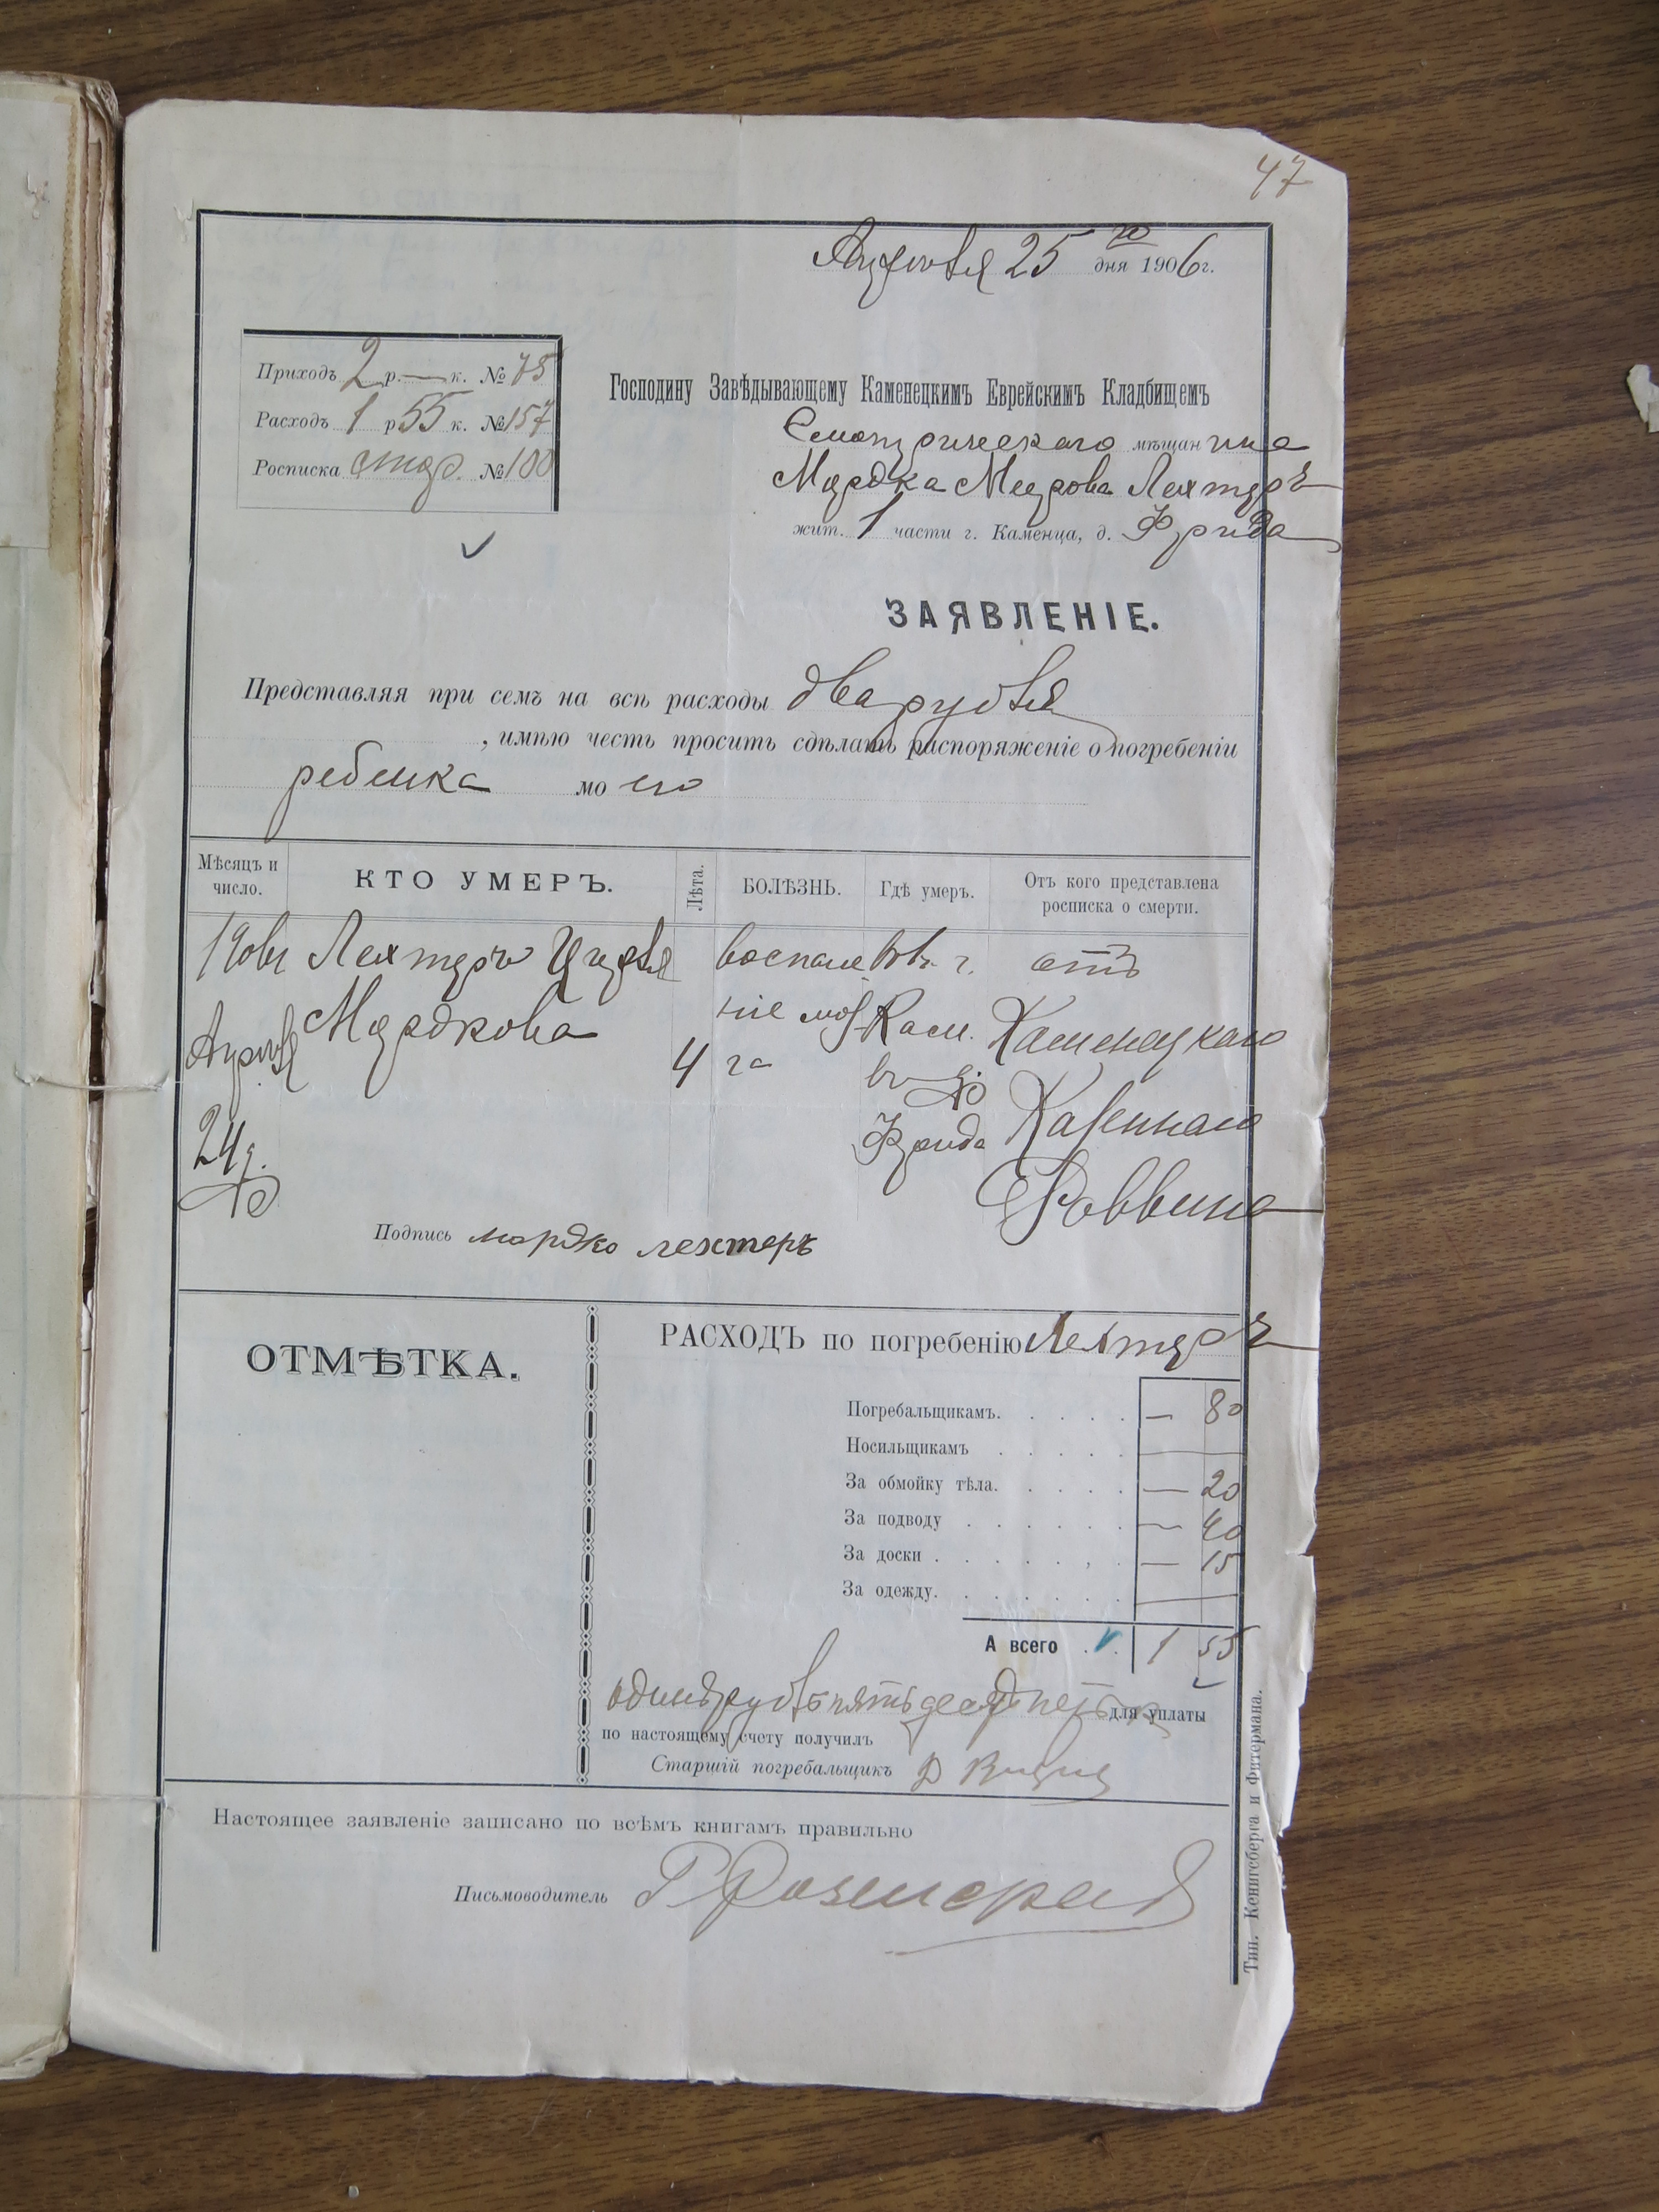 47
Апреля 25 го дня 1906 г.
Приходъ 2 р. — к. № 75
Расходъ 1 р 55 к. № 157
Росписка № 100
Господину Завѣдывающему Каменецкимъ Еврейскимъ Кладбищемъ
Смотрическаго мѣщанина
Мордка Меерова Лехтеръ
жит. 1 части г. Каменца, д. Фрида
ЗАЯВЛЕНІЕ.
Представляя при семъ на всѣ расходы два рубля
, имѣю честь просить сдѣлать распоряженіе о погребеніи
ребенка моего
Мѣсяцъ и число. КТО УМЕРЪ. Лѣта. БОЛѢЗНЬ. Гдѣ умеръ. Отъ кого представлена росписка о смерти.
190 Лехтеръ воспале въ г. отъ
Апреля Мордкова 4 ніе моз Кам. Каменецкаго
га въ д. Казеннаго
24 Фрида Раввина
Подпись мордко лехтеръ
ОТМѢТКА.
РАСХОДЪ по погребенію Лехтеръ
Погребальщикамъ. — 80
Носильщикамъ —
За обмойку тѣла. — 20
За подводу — 40
За доски — 15
За одежду. —
А всего 1 55
одинъ рубль пятьдесятъ пять к для уплаты
по настоящему счету получилъ
Старшій погребальщикъ
Настоящее заявленіе записано по всѣмъ книгамъ правильно
Письмоводитель
Тип. Кенигсберга и Фитермана.